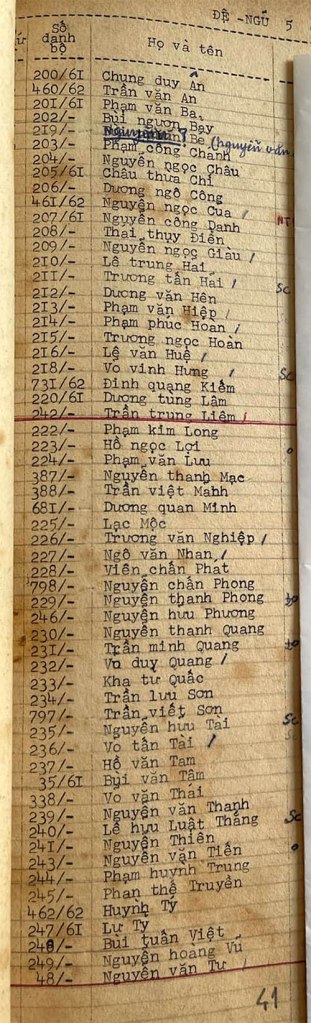 ĐỆ -NGŨ 5
Số danh bộ Họ và tên
200/6I Chung duy Ân
460/62 Trần văn An
20I/6I Phạm văn Ba
202/- Bùi ngươn Bay
2I9/- Be (nguyễn văn
203/- Phạm công Chanh
204/- Nguyễn ngọc Châu
205/6I Châu thừa Chí
206/- Dương ngô Công
46I/62 Nguyễn ngọc Cua /
207/6I Nguyễn công Danh
208/- Thai thụy Điền
209/- Nguyễn ngọc Giàu /
2I0/- Lê trung Hai
2II/- Trương tấn Hai / Sc
2I2/- Dương văn Hên
2I3/- Phạm văn Hiệp /
2I4/- Phạm phuc Hoan /
2I5/- Trương ngọc Hoàn
2I6/- Lê văn Huệ /
2I8/- Vo vinh Hưng / Sc
73I/62 Đinh quang Kiểm
220/6I Dương tung Lâm
242/- Trần trung Liêm /
222/- Phạm kim Long
223/- Hồ ngọc Lợi
224/- Phạm văn Lưu
387/- Nguyễn thanh Mạc
388/- Trần việt Mahh
68I/- Dương quan Minh
225/- Lạc Mộc
226/- Trương văn Nghiệp /
227/- Ngô văn Nhan /
228/- Viên chấn Phat
798/- Nguyễn chấn Phong
229/- Nguyễn thanh Phong
246/- Nguyễn hưu Phương
230/- Nguyễn thanh Quang
23I/- Trần minh Quang
232/- Vo duy Quang /
233/- Kha tư Quấc
234/- Trần lưu Sơn
797/- Trần viết Sơn
235/- Nguyễn hưu Tai Sc
236/- Vo tấn Tài /
237/- Hồ văn Tam
35/6I Bụi văn Tâm
338/- Vo văn Thái
239/- Nguyễn văn Thanh
240/- Lê hưu Luật Thắng Sc
24I/- Nguyễn Thiên
243/- Nguyễn văn Tiến
244/- Phạm huỳnh Trung
245/- Phan thế Truyền
462/62 Huỳnh Tý
247/6I Lư Ty
248/- Bui tuấn Việt
249/- Nguyễn hoang Vũ
48/- Nguyễn văn Tư /
41